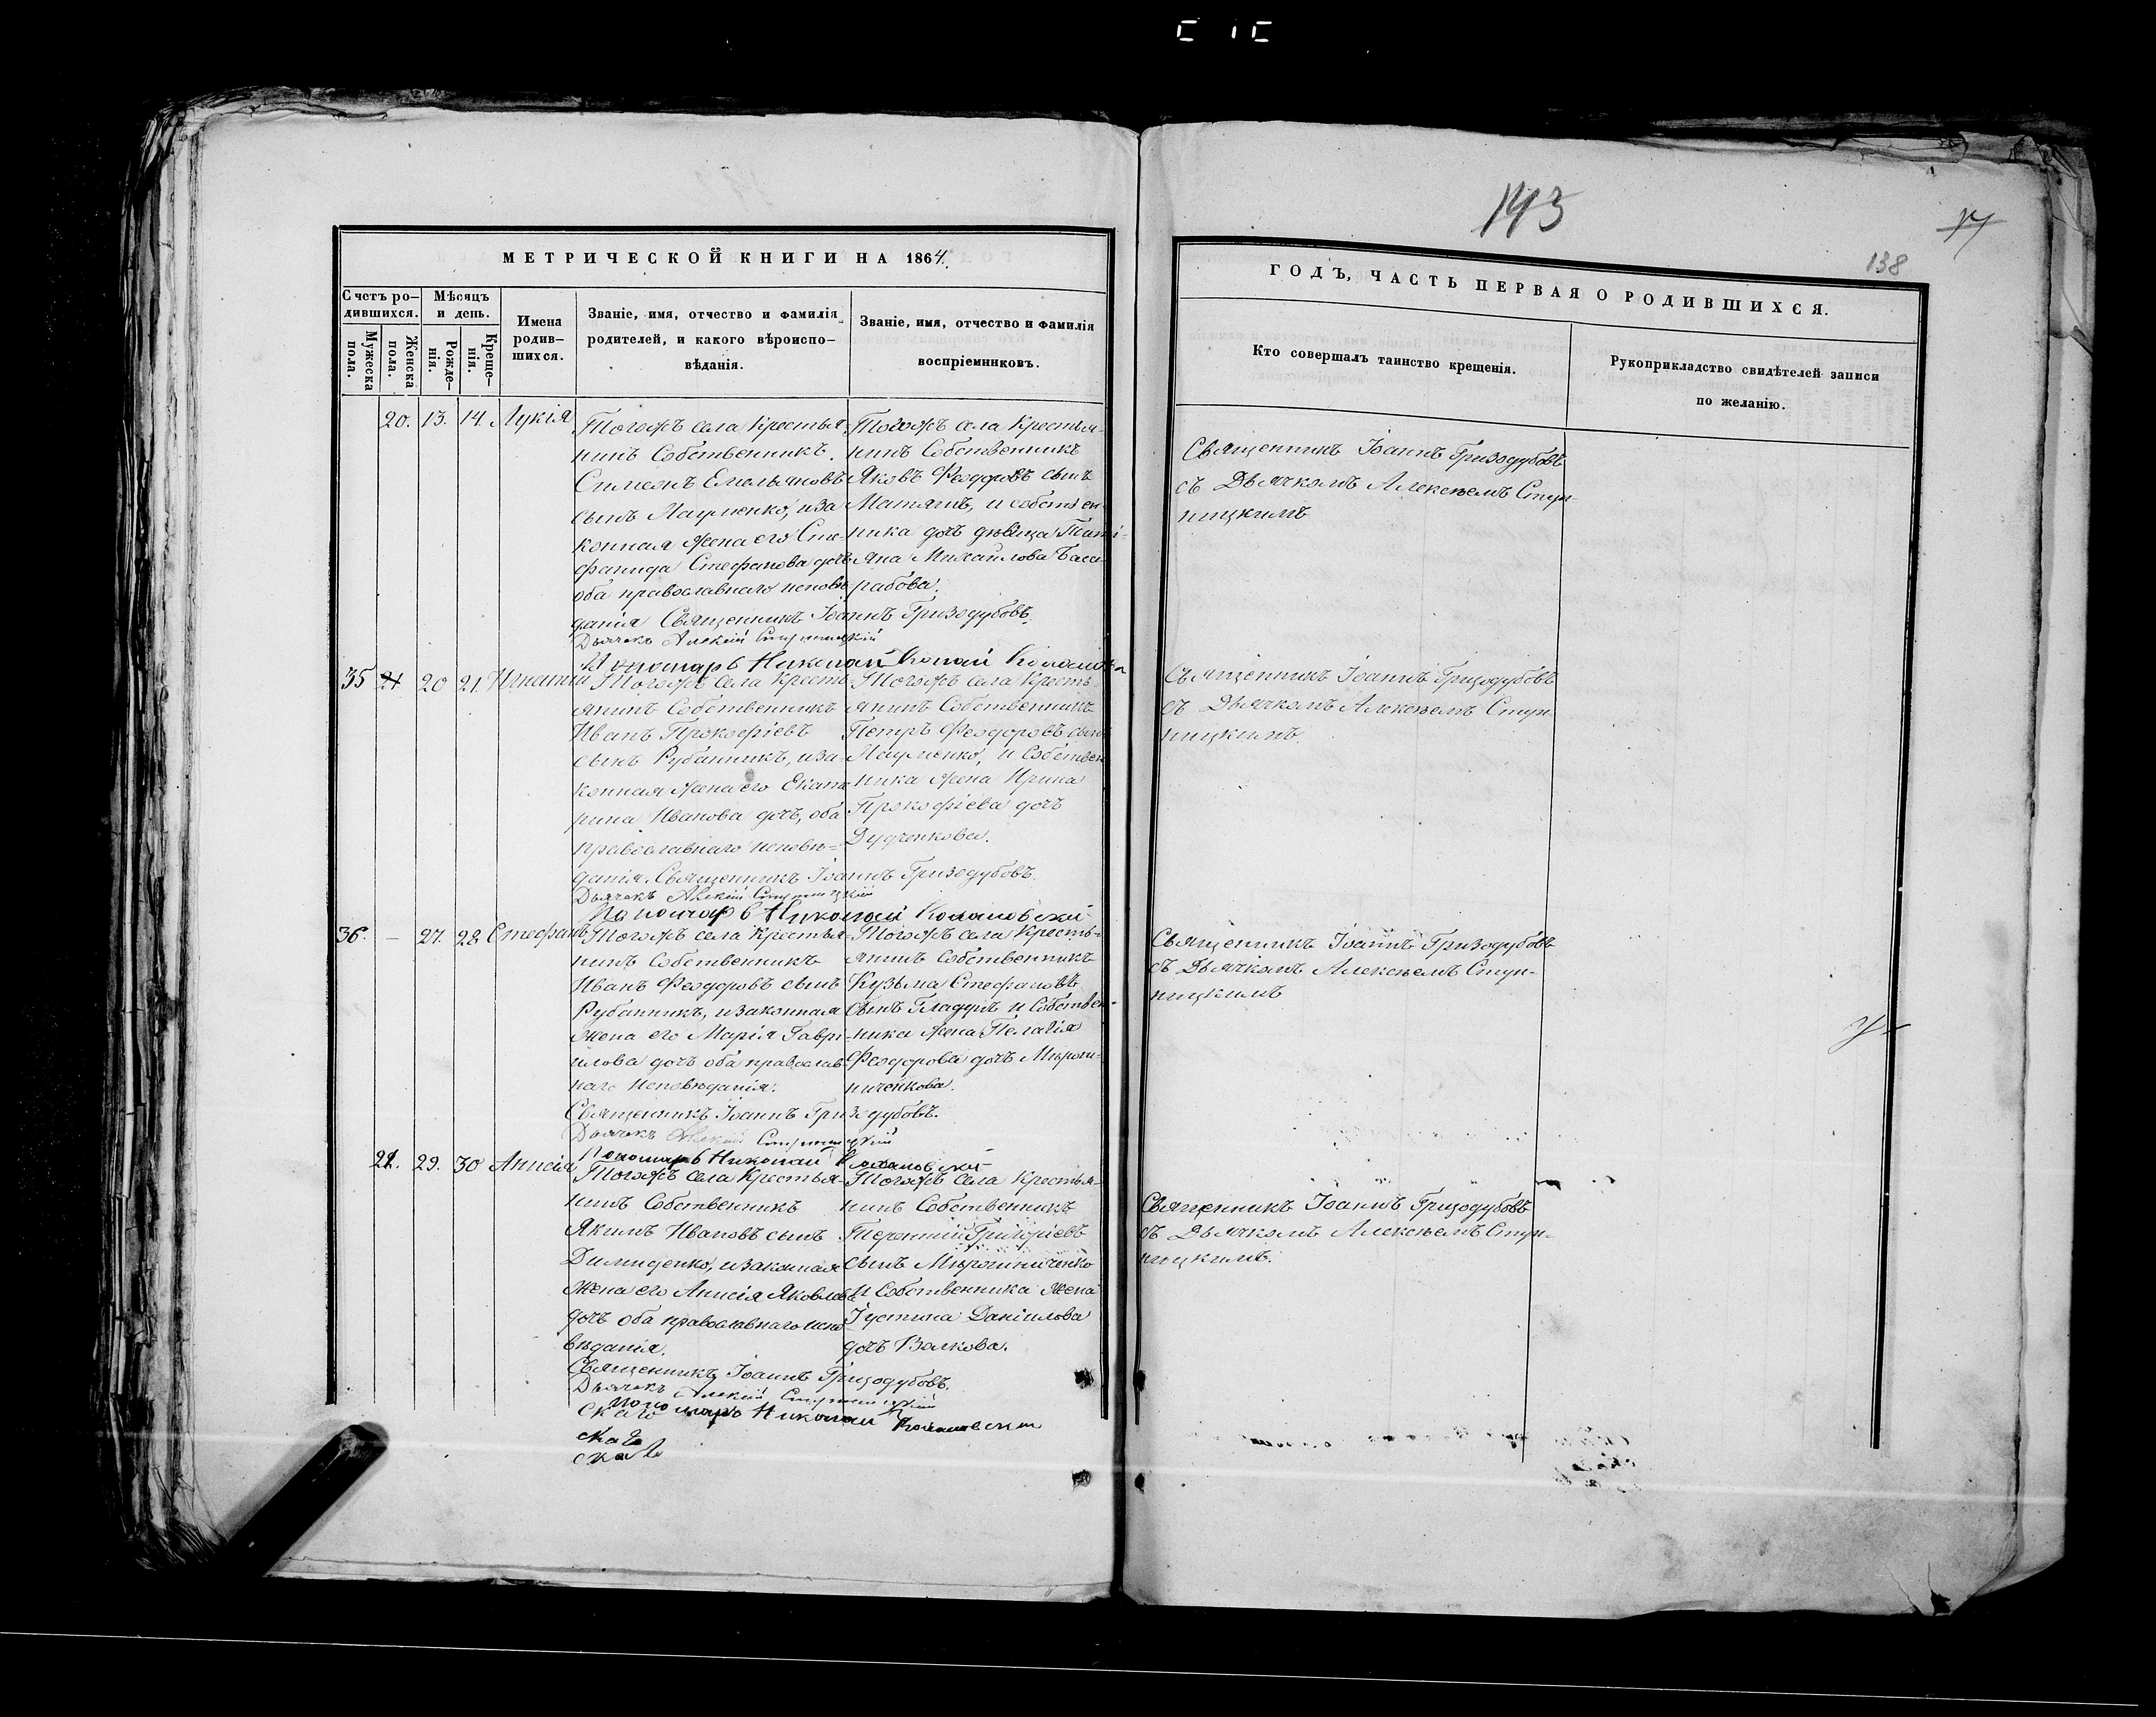 143
138
МЕТРИЧЕСКОЙ КНИГИ НА 1864.
ГОДЪ, ЧАСТЬ ПЕРВАЯ О РОДИВШИХСЯ.
Счетъ ро-
дившихся.
Мужеска
пола.
Женска
пола.
Мѣсяцъ
и день.
Рожде-
нія.
Креще-
нія.
Имена
родив-
шихся.
Званіе, имя, отчество и фамилія
родителей, и какого вѣроиспо-
вѣданія.
Званіе, имя, отчество и фамилія
воспріемниковъ.
Кто совершалъ таинство крещенія.
Рукоприкладство свидѣтелей записи
по желанію.
20. 13. 14. Лукія
Тогожъ села Крестья-
нинъ Собственникъ
Симеонъ Емельяновъ
сынъ Науменко, и за
конная жена его Сте-
фанида Стефанова дочъ
оба православнаго исповѣ
данія Священникъ Іоаннъ Гризодубовъ.
Дьячекъ Алексій
Пономарь Николай
Тогожъ села Крестья-
нинъ Собственникъ
Яковъ Феодоровъ сынъ
Матяшъ, и собствен
ника дочъ дѣвица Тати-
яна Михаилова Баса-
рабова.
Священникъ Іоаннъ Гризодубовъ
съ Дьячкомъ Алексѣемъ Ступ-
ницкимъ
35 20 21. Игнатій
Тогожъ села Кресть-
янинъ Собственникъ
Иванъ Прокофіевъ
сынъ Рубанникъ, и за
конная жена его Екате
рина Иванова дочъ, оба
православнаго исповѣ=
данія. Священникъ Іоаннъ Гризодубовъ.
Дьячекъ Алексій
Пономарь Николай
Тогожъ села Кресть-
янинъ Собственникъ
Петръ Феодоровъ сынъ
Науменко, и Собствен
ника жена Ирина
Прокофіева дочъ
Дудченкова.
Священникъ Іоаннъ Гризодубовъ
съ Дьячкомъ Алексѣемъ Ступ
ницкимъ.
36. – 27. 28 Стефанъ
Тогожъ села Крестья-
нинъ Собственникъ
Иванъ Феодоровъ сынъ
Рубанникъ, и законная
жена его Марія Гаврі-
илова дочъ оба православ-
наго исповѣданія.
Священникъ Іоаннъ Гризодубовъ.
Дьячекъ Алексій
Пономарь Николай
Тогожъ села Кресть=
янинъ Собственникъ
Кузьма Стефановъ
сынъ Гладушъ и Собствен-
ника жена Пелагія
Феодорова дочъ Мирош-
ниченкова.
Священникъ Іоаннъ Гризодубовъ
съ Дьячкомъ Алексѣемъ Ступ-
ницкимъ
21. 29. 30 Анисія
Тогожъ села Крестья-
нинъ Собственникъ
Якимъ Ивановъ сынъ
Димиденко, и законная
жена его Анисія Яковлева
дочъ оба православнаго испо
вѣданія.
Священникъ Іоаннъ Гризодубовъ.
Дьячекъ Алексій
Пономарь Николай
Тогожъ села Крестья-
нинъ Собственникъ
Терентій Григоріевъ
сынъ Мирошниченко
и Собственника жена
Іустина Даніилова
дочъ Волкова.
Священникъ Іоаннъ Гризодубовъ
съ Дьячкомъ Алексѣемъ Ступ-
ницкимъ.
скаго